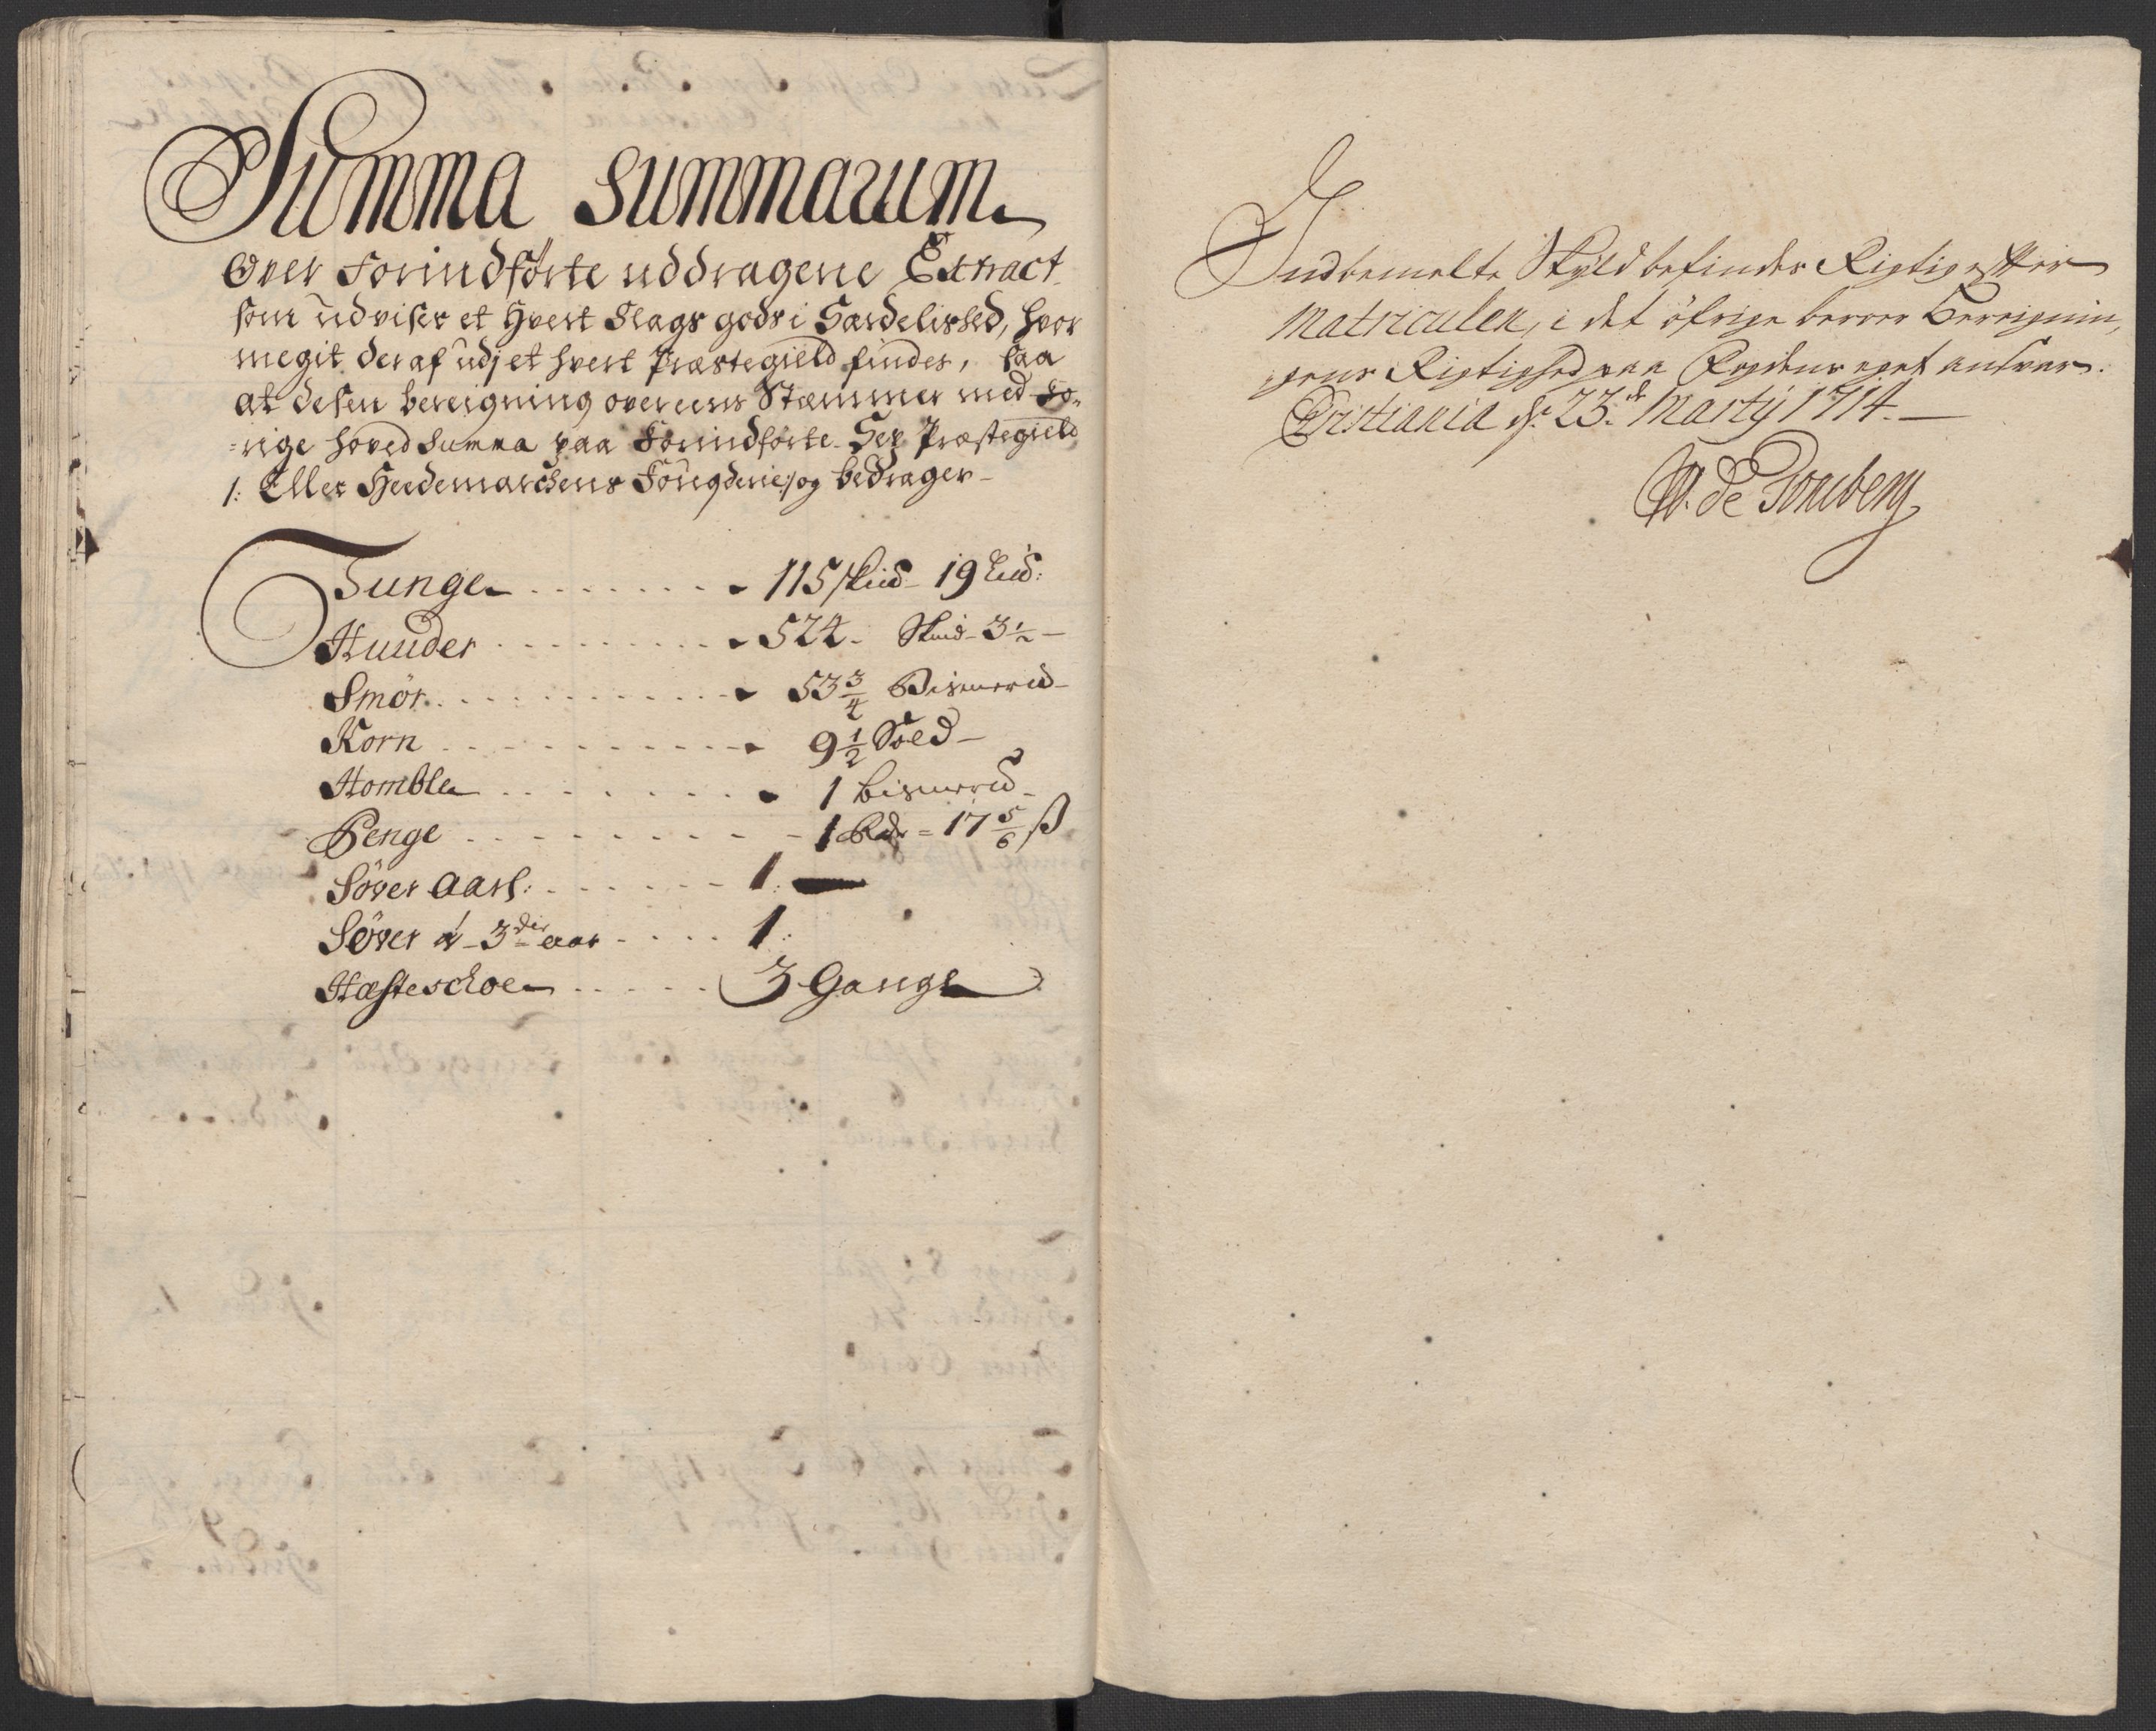 Summa Summarum
Over Forindførte uddragene Extract
som udviser et Hvert Slags gods i Særdelished, hvor
megit der af udj et hvert Præstegield findes, saa
at desen bereigning overeens Stæmmer med fo„
„rige hoved Summa paa Forindførte Sex Præstegield
/: Eller Hedemarchens Fougderie:/ og bedrager
Tunge 115 skud 19 Lid:
Huuder 524 Skind 3½
Smör 53¾ Bismerpd
Korn 9½ Sæd
Homble 1 bismerpd
Penge 1 Rdr 17 5/6 ß
Söver Aarl: 1:
Söver á 3die aar 1:
Hæsteschoe 3 Gange
Indbemelte Skyld befindes Rigtig efter
Matriculen, i det öfrige beroer Bereignin„
gens Rigtighed paa Fogdens eget ansvar.
Cristiania d: 23. Martij 1714.
de Tonsberg